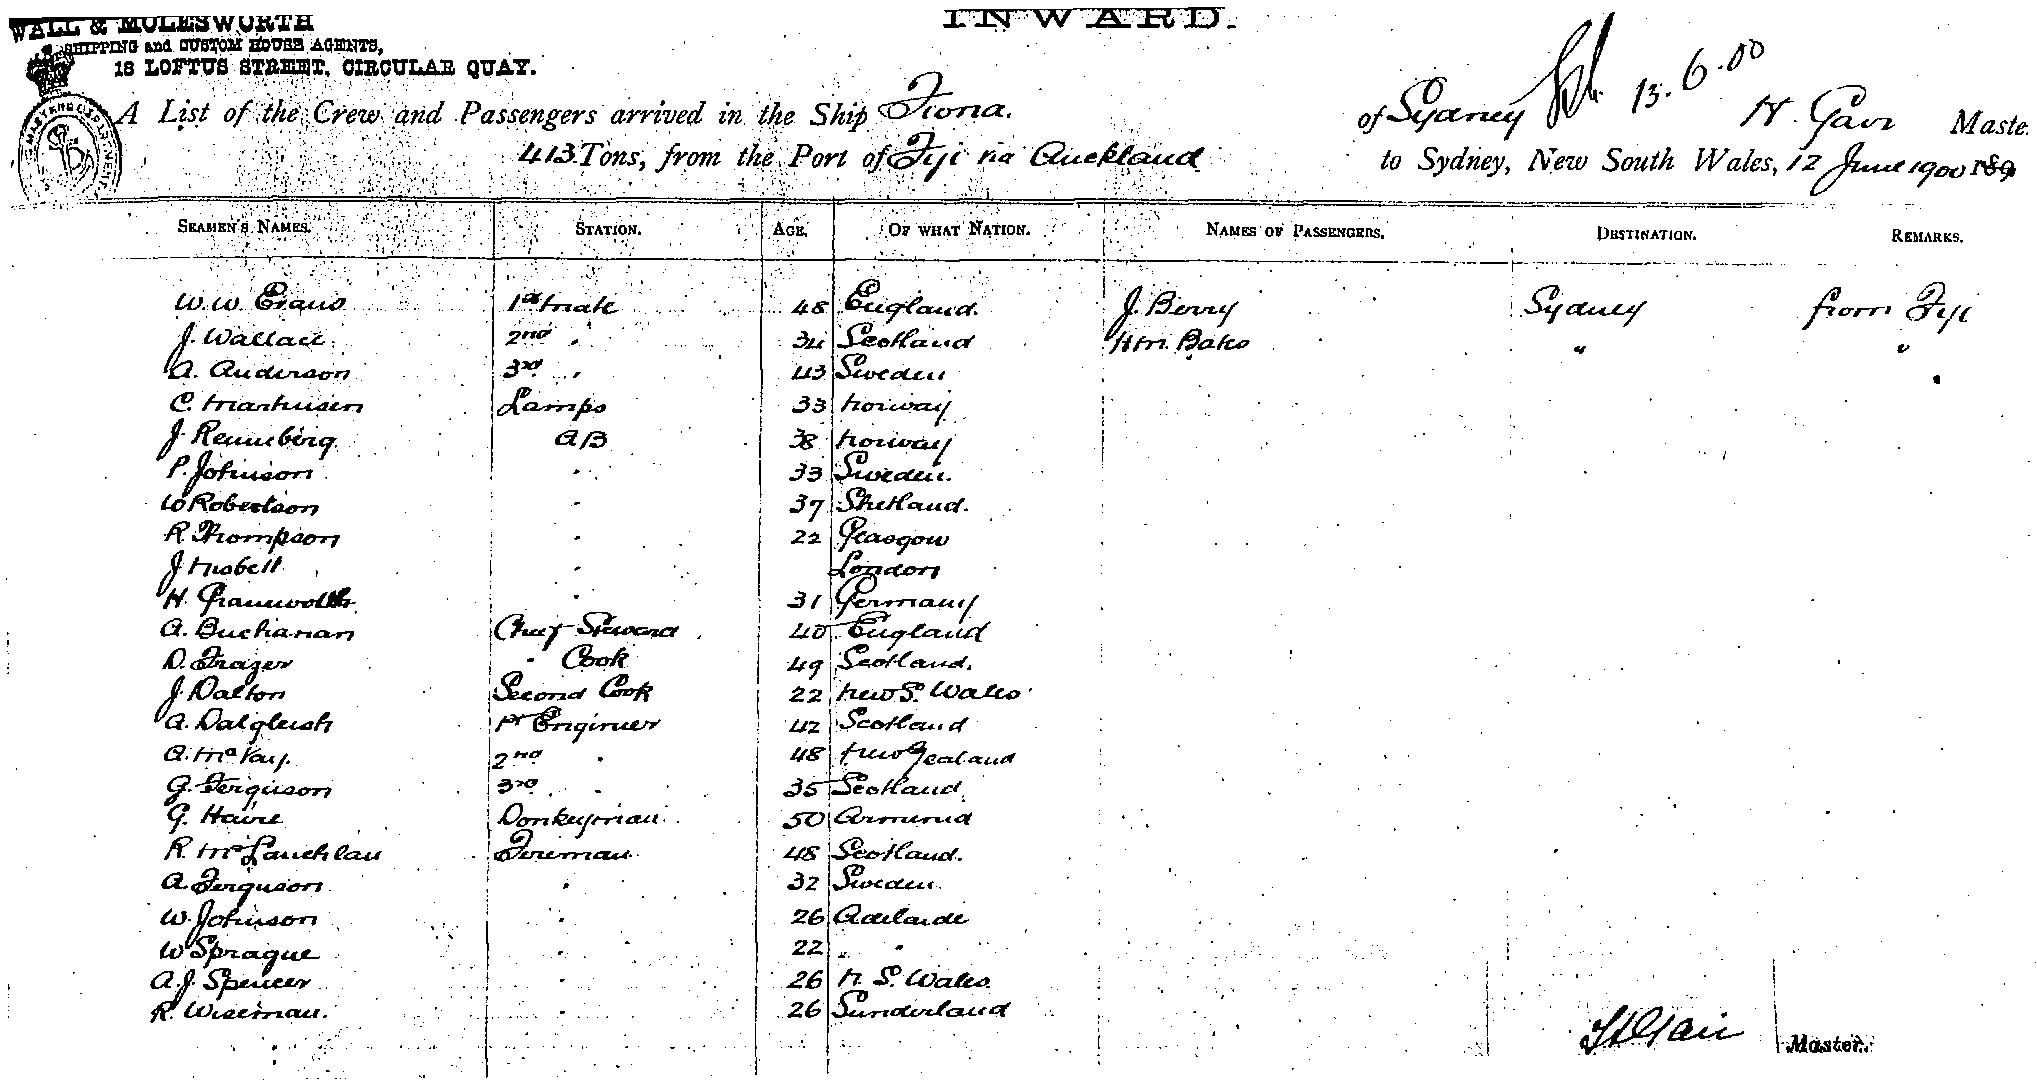 INWARD.
WALL & MOLESWORTH
SHIPPING and CUSTOM HOUSE AGENTS,
18 LOFTUS STREET, CIRCULAR QUAY.
13.6.00
A List of the Crew and Passengers arrived in the Ship Fiona. of Sydney H. Gair Maste
413 Tons, from the Port of Fiji via Auckland to Sydney, New South Wales, 12 June 1900 189
SEAMEN'S NAMES. STATION. AGE. OF WHAT NATION. NAMES OF PASSENGERS. DESTINATION. REMARKS.
W. W. Evans 1st Mate 48 England. J. Berry Sydney from Fiji
J. Wallace 2nd " 34 Scotland Hm. Bako " "
A. Anderson 3rd " 43 Sweden
C. Marthisen Lamps 33 Norway
J. Rennberg AB 38 Norway
P. Johnson " 33 Sweden.
W Robertson " 37 Shetland.
R. Thompson " 22 Glasgow
J Nisbett " London
H. " 31 Germany
A. Buchanan Chief Steward 40 England
D. Frazer " Cook 49 Scotland.
J. Dalton Second Cook 22 New S. Wales
A. Dalgleish 1st Engineer 42 Scotland
A. McKay. 2nd " 48 New Zealand
G. Ferguson 3rd " 35 Scotland
G. Haire Donkeyman 50 
R. McLauchlan Fireman 48 Scotland.
A. Ferguson " 32 Sweden
W. Johnson " 26 Adelaide
W Sprague " 22 "
A. J. Spencer " 26 N. S. Wales
R. Wiseman. " 26 Sunderland
H Gair Master.